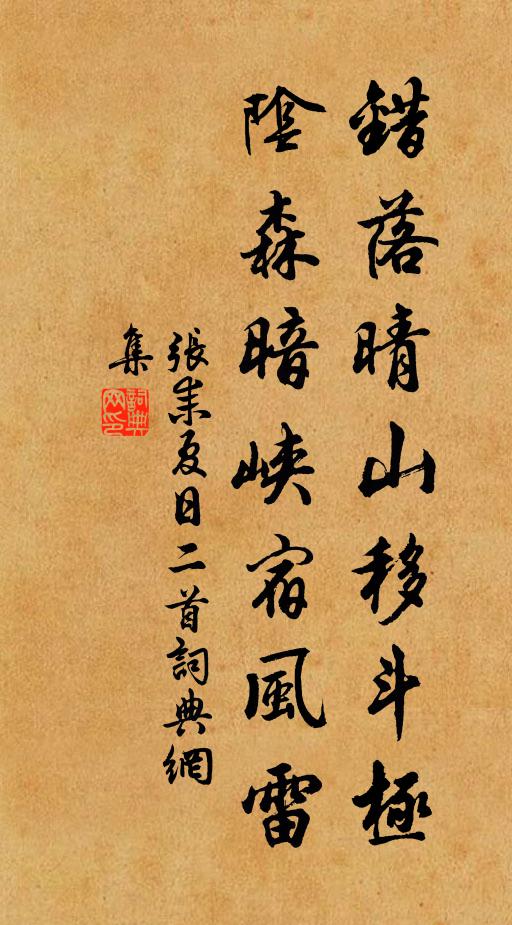 錯落晴山移斗極
陰森暗峽宿風雷
張耒夏日二首詞典網
集
詞典網印